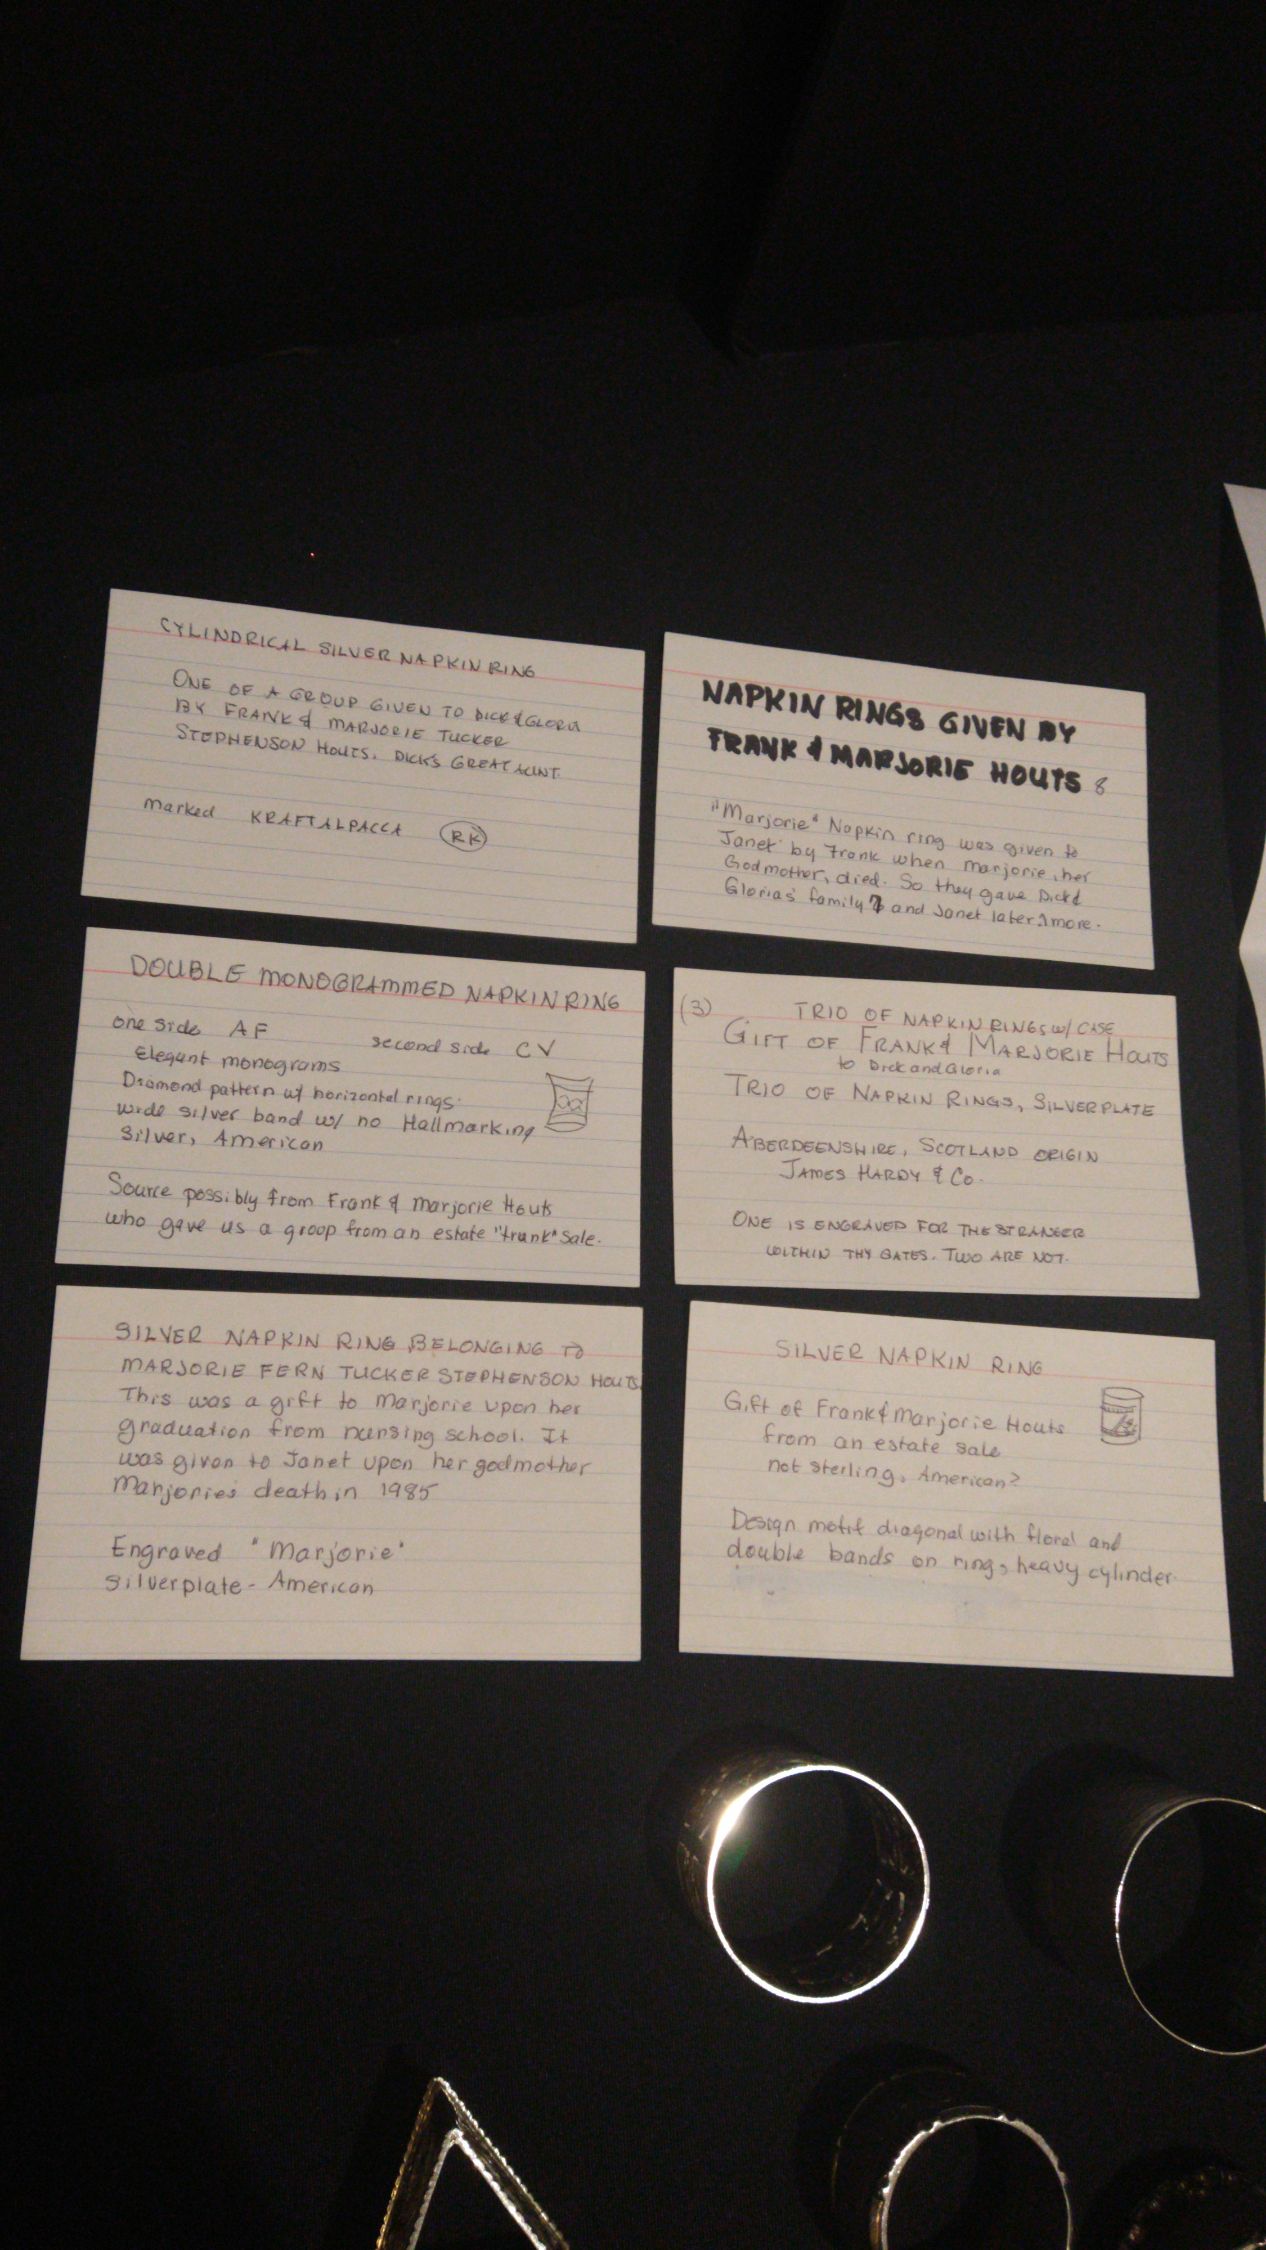 CYLINDRICAL SILVER NAPKIN RING
ONE OF A GROUP GIVEN TO DICK & GLORIA
BY FRANK & MARJORIE TUCKER
STEPHENSON HOUTS. DICK'S GREAT AUNT.
marked KRAFTALPACCA RK
NAPKIN RINGS GIVEN BY
FRANK & MARJORIE HOUTS 8
"Marjorie" Napkin ring was given to
Janet by Frank when marjorie, her
Godmother, died. So they gave Dick &
Gloria's family 7 and Janet later 1 more.
DOUBLE MONOGRAMMED NAPKIN RING
one side AF second side CV
Elegant monograms
Diamond pattern w/ horizontal rings
wide silver band w/ no Hallmarking
Silver, American
Source possibly from Frank & Marjorie Houts
who gave us a groop from an estate "trunk" sale.
(3) TRIO OF NAPKIN RINGS w/ CASE
GIFT OF FRANK & MARJORIE HOUTS
to Dick and Gloria
TRIO OF NAPKIN RINGS, SILVERPLATE
ABERDEENSHIRE, SCOTLAND ORIGIN
JAMES HARDY & CO.
ONE IS ENGRAVED FOR THE STRANGER
WITHIN THY GATES. TWO ARE NOT.
SILVER NAPKIN RING BELONGING TO
MARJORIE FERN TUCKER STEPHENSON HOUTS
This was a gift to Marjorie upon her
graduation from nursing school. It
was given to Janet upon her godmother
Marjorie's death in 1985
Engraved "Marjorie"
silverplate - American
SILVER NAPKIN RING
Gift of Frank & Marjorie Houts
from an estate sale
not sterling, American?
Design motif diagonal with floral and
double bands on ring, heavy cylinder